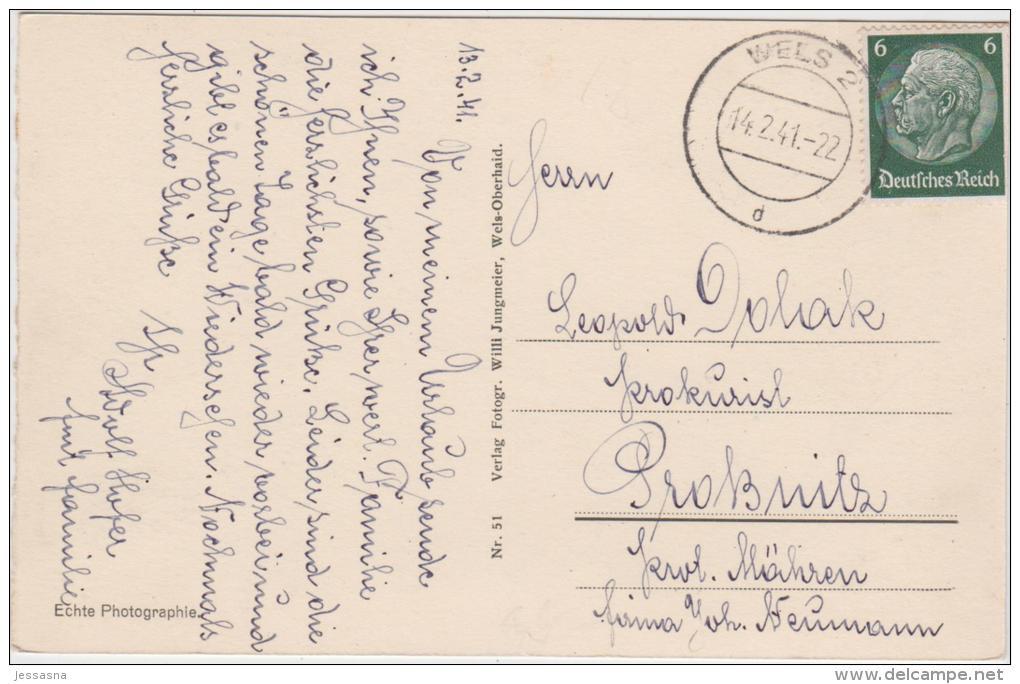 13.2.41.
Von meinem Urlaub sende
ich Ihnen, sowie Ihrer wert. Familie
die herzlichsten Grüße. Leider sind die
schönen Tage bald wieder vorbei und
gibt es bald ein Wiedersehen. Nochmals
herzliche Grüße
Ihr
Adolf Hofer
und Familie
Echte Photographie.
Nr. 51 Verlag Fotogr. Willi Jungmeier, Wels-Oberhaid.
WELS 2
14.2.41.-22
d
6 6
Deutsches Reich
Herrn
Leopold Dolak
Prokurist
Proßnitz
Prot. Mähren
Firma Joh. Neumann
jessasna
www.delcampe.net